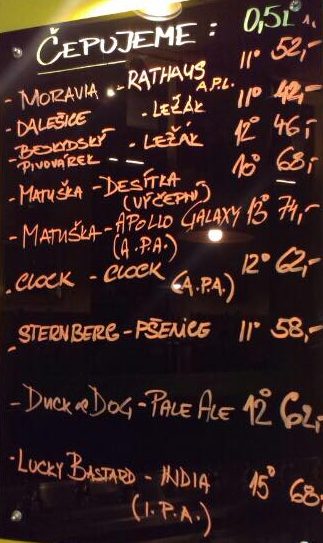 ČEPUJEME: 0,5L
- MORAVIA - RATHAUS A.P.L. 11° 52,-
- DALEŠICE - LEŽÁK 11° 42,-
- BESKYDSKÝ PIVOVÁREK - LEŽÁK 12° 46,-
- MATUŠKA - DESÍTKA 10° 68,-
(VÝČEPNÍ)
- MATUŠKA - APOLLO GALAXY 13° 74,-
(A.P.A.)
- CLOCK - CLOCK 12° 62,-
(A.P.A.)
- STERNBERG - PŠENICE 11° 58,-
- DUCK & DOG - PALE ALE 12° 62,-
- LUCKY BASTARD - INDIA 15° 68,-
(I.P.A.)